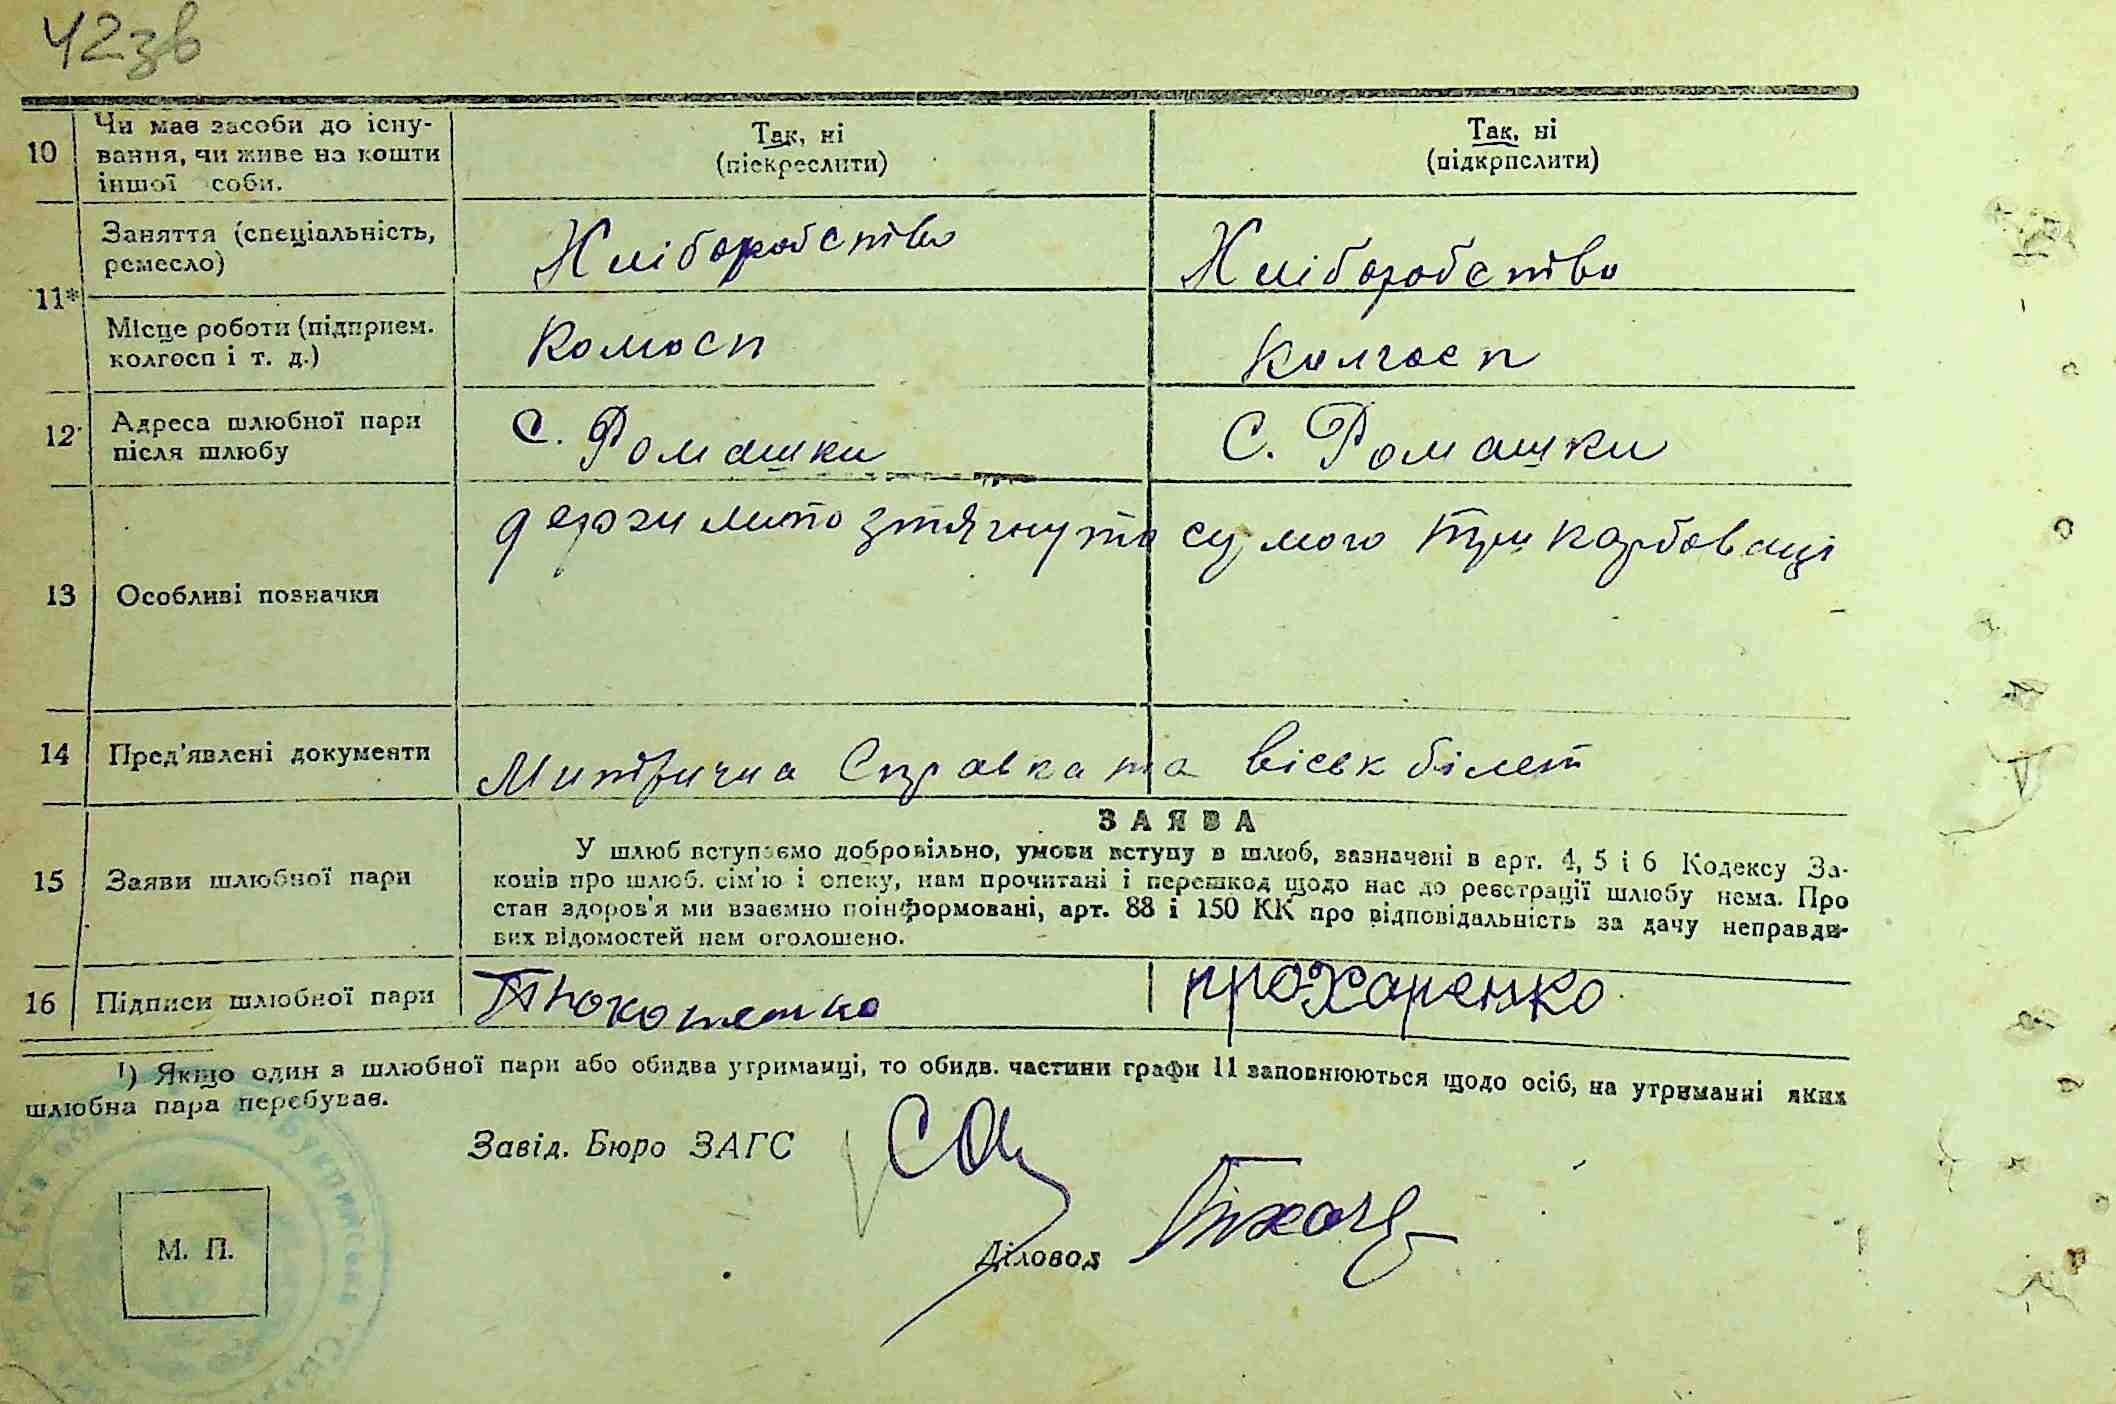 42зв
10
Чи має засоби до існу-
вання, чи живе на кошти
іншої соби.
Так, ні
(піскреслити)
Так, ні
(підкрпслити)
11*
Заняття (спеціальність,
ремесло)
Хліборобство
Хліборобство
Місце роботи (підприєм.
колгосп і т. д.)
Колгосп
Колгосп
12
Адреса шлюбної пари
після шлюбу
С. Ромашки
С. Ромашки
13
Особливі позначки
держмито зтягнуто сумою три карбованці
14
Пред'явлені документи
Митрична Справка та віськ білет
15
Заяви шлюбної пари
ЗАЯВА
У шлюб вступаємо добровільно, умови вступу в шлюб, зазначені в арт. 4, 5 і 6 Кодексу За-
конів про шлюб. сім'ю і опеку, нам прочитані і перешкод щодо нас до реєстрації шлюбу нема. Про
стан здоров'я ми взаємно поінформовані, арт. 88 і 150 КК про відповідальність за дачу неправди-
вих відомостей нам оголошено.
16
Підписи шлюбної пари
проХаренко
¹) Якщо один з шлюбної пари або обидва утриманці, то обидв. частини графи 11 заповнюються щодо осіб, на утриманні яких
шлюбна пара перебуває.
Завід. Бюро ЗАГС
Діловод
М. П.